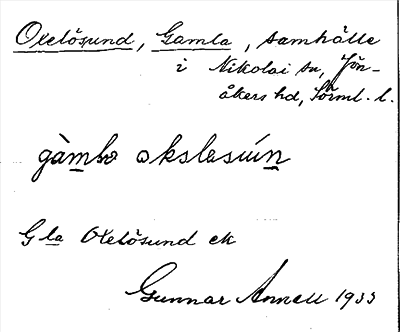 Oxelösund, Gamla, samhälle
i Nikolai sn, Jön-
åkers hd, Sörml. l.
gàmbɷ okslesún
Gla Oxelösund ek
Gunnar Annell 1933